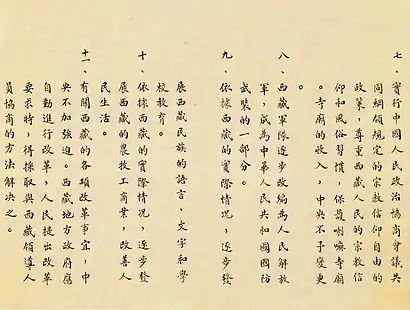 七、實行中國人民政治協商會議共
同綱領規定的宗教信仰自由的
政策，尊重西藏人民的宗教信
仰和風俗習慣，保護喇嘛寺廟
。寺廟的收入，中央不予變更
。
八、西藏軍隊逐步改編為人民解放
軍，成為中華人民共和國國防
武裝的一部分。
九、依據西藏的實際情況，逐步發
展西藏民族的語言、文字和學
校教育。
十、依據西藏的實際情況，逐步發
展西藏的農牧工商業，改善人
民生活。
十一、有關西藏的各項改革事宜，中
央不加強迫。西藏地方政府應
自動進行改革，人民提出改革
要求時，得採取與西藏領導人
員協商的方法解決之。